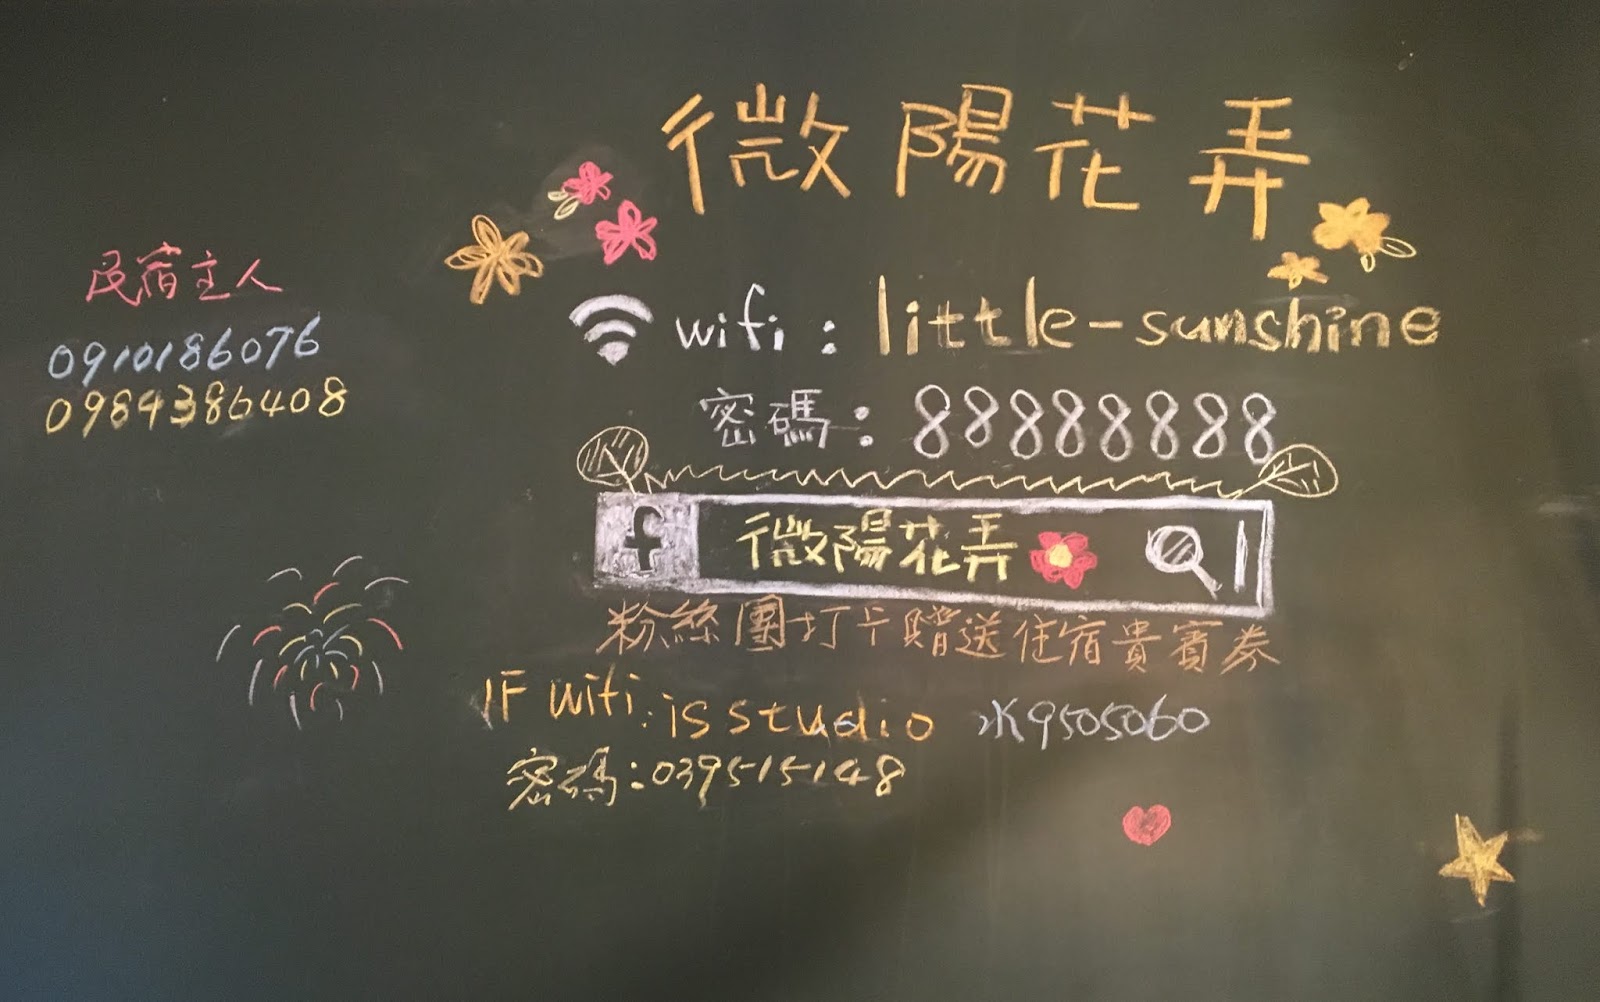 微陽花弄
民宿主人
0910186076
0984386408
wifi: little-sunshine
密碼: 88888888
f 微陽花弄
粉絲團打卡贈送住宿貴賓券
1F wifi: is studio 水9505060
密碼:039515148